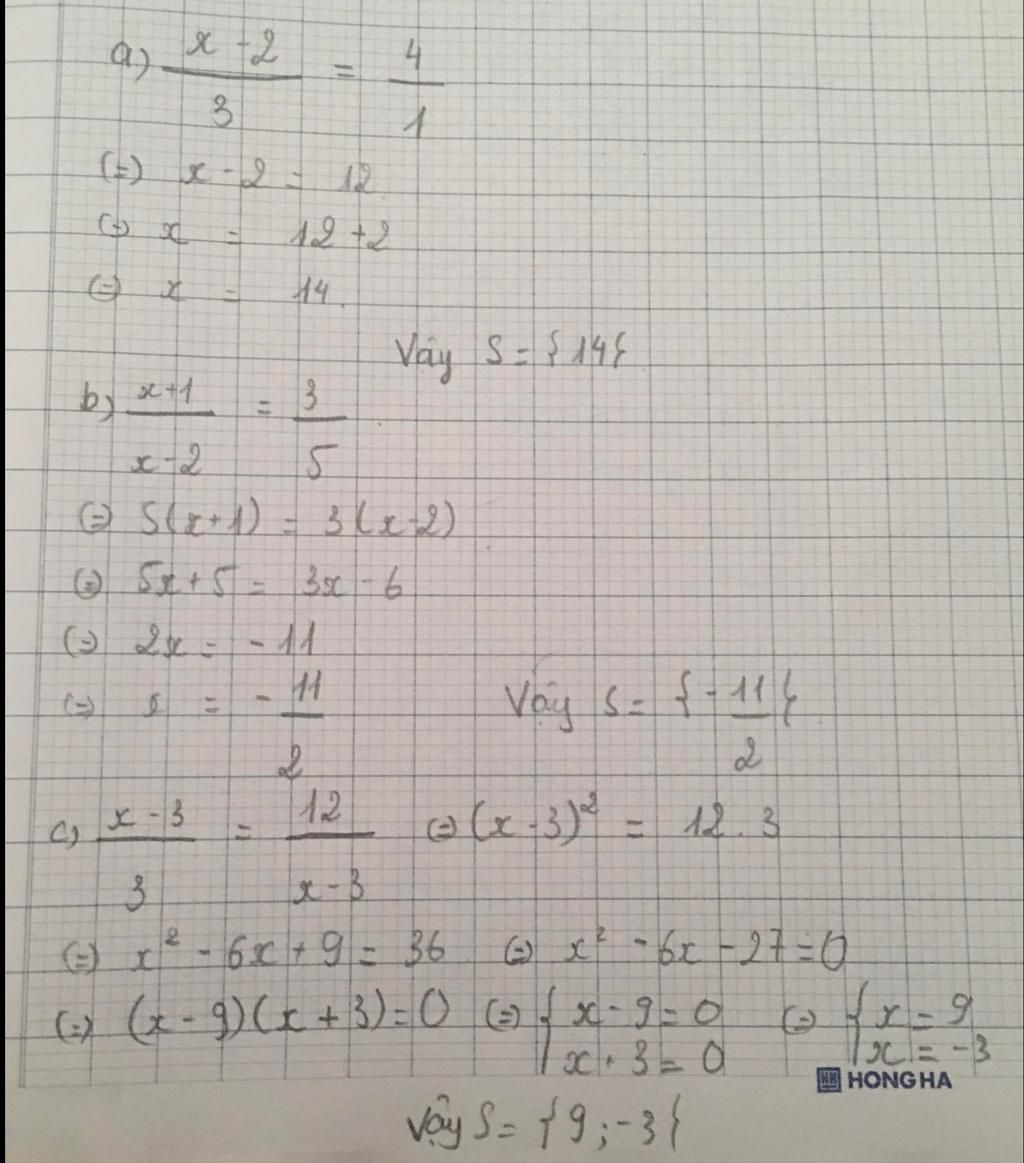 a) x-2 / 3 = 4 / 1
(=) x-2 = 12
(=) x = 12+2
(=) x = 14.
Vây S = {14}
b) x+1 / x-2 = 3 / 5
(=) 5(x+1) = 3(x-2)
(=) 5x+5 = 3x-6
(=) 2x = -11
(=) x = - 11 / 2 Vậy S = {- 11 / 2}
c) x-3 / 3 = 12 / x-3 (=) (x-3)² = 12.3
(=) x² - 6x + 9 = 36 (=) x² - 6x - 27 = 0
(=) (x-9)(x+3)=0 (=) { x-9=0 (=) { x=9
x+3=0 x=-3
HH HONG HA
Vậy S = {9;-3}